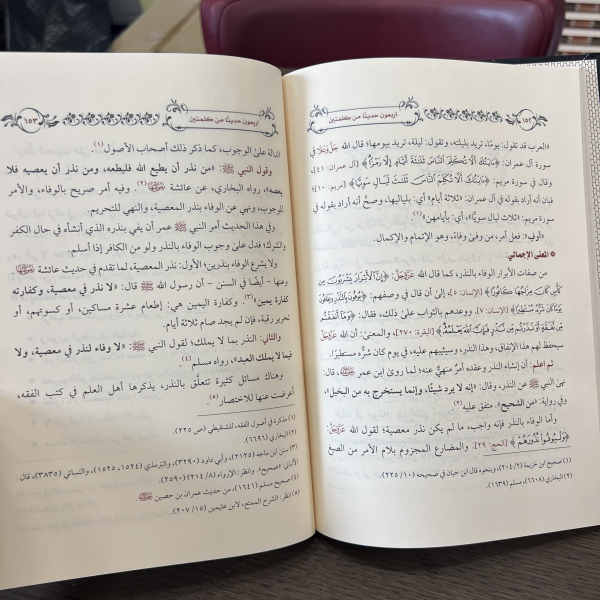 ١٥٢
أربعون حديثًا من كلمتين
«العرب قد تقول: يومًا، تريد بليلته، وتقول: ليلة، تريد بيومها؛ قال الله جَلَّ وَعَلَا في
سورة آل عمران: ﴿ءَايَتُكَ أَلَّا تُكَلِّمَ ٱلنَّاسَ ثَلَٰثَةَ أَيَّامٍ إِلَّا رَمْزًا﴾ [آل عمران: ٤١]،
وقال في سورة مريم: ﴿ءَايَتُكَ أَلَّا تُكَلِّمَ ٱلنَّاسَ ثَلَٰثَ لَيَالٍ سَوِيًّا﴾ [مريم: ١٠]؛
فبان أنه أراد بقوله في آل عمران: «ثلاثة أيام» أي: بلياليها، وصحَّ أنه أراد بقوله في
سورة مريم: «ثلاث ليال سويًّا»، أي: بأيامهن»(١).
«أوف»: فعل أمر، من وفى وفاءً، وهو الإتمام والإكمال.
المعنى الإجمالي:
من صفات الأبرار الوفاء بالنذر، كما قال الله عَزَّوَجَلَّ: ﴿إِنَّ ٱلْأَبْرَارَ يَشْرَبُونَ مِن
كَأْسٍ كَانَ مِزَاجُهَا كَافُورًا﴾ [الإنسان: ٥]، إلى أن قال في وصفهم: ﴿يُوفُونَ بِٱلنَّذْرِ وَيَخَافُونَ
يَوْمًا كَانَ شَرُّهُۥ مُسْتَطِيرًا﴾ [الإنسان: ٧]. ووعدهم بالثواب على ذلك، فقال: ﴿وَمَآ أَنفَقْتُم
مِّن نَّفَقَةٍ أَوْ نَذَرْتُم مِّن نَّذْرٍ فَإِنَّ ٱللَّهَ يَعْلَمُهُۥ﴾ [البقرة: ٢٧٠]، والمعنى: أن الله عَزَّوَجَلَّ
سيحفظ لهم هذا الإنفاق، وهذا النذر، وسيثيبهم عليه، في يوم كان شرُّه مستطيرًا.
ثم اعلم: أن إنشاء النذر وعقده أمرٌ منهيٌّ عنه؛ لما روى ابن عمر رضي الله عنهما، قال:
نهى النبي ﷺ عن النذر، وقال: «إنه لا يرد شيئًا، وإنما يستخرج به من البخيل»،
وفي رواية: «من الشحيح». متفق عليه(٢).
وأما الوفاء بالنذر فإنه واجب، ما لم يكن نذر معصية؛ لقول الله عَزَّوَجَلَّ:
﴿وَلْيُوفُوا۟ نُذُورَهُمْ﴾ [الحج: ٢٩]. والمضارع المجزوم بلام الأمر من الصيغ
(١) صحيح ابن خزيمة (٢/ ٢٠٤)، ونحوه قال ابن حبان في صحيحه (١٠/ ٢٢٥).
(٢) البخاري (٦٦٠٨)، مسلم (١٦٣٩).
أربعون حديثًا من كلمتين
١٥٣
الدالة على الوجوب، كما ذكر ذلك أصحاب الأصول(١).
وقول النبي ﷺ: «من نذر أن يطيع الله فليطعه، ومن نذر أن يعصيه فلا
يعصه»، رواه البخاري، عن عائشة رضي الله عنها(٢). وفيه أمر صريح بالوفاء، والأمر
للوجوب، ونهي عن الوفاء بنذر المعصية، والنهي للتحريم.
وفي هذا الحديث أمر النبي ﷺ عمر أن يفي بنذره الذي أنشأه في حال الكفر
والشرك؛ فدل على وجوب الوفاء بالنذر ولو من الكافر إذا أسلم.
ولا يشرع الوفاء بنذرين؛ الأول: نذر المعصية، لما تقدم في حديث عائشة رضي الله عنها،
وعنها - أيضًا في السنن - أن رسول الله ﷺ قال: «لا نذر في معصية، وكفارته
كفارة يمين»(٣). وكفارة اليمين هي: إطعام عشرة مساكين، أو كسوتهم، أو
تحرير رقبة، فإن لم يجد صام ثلاثة أيام.
والثاني: النذر بما لا يملك؛ لقول النبي ﷺ: «لا وفاء لنذر في معصية، ولا
فيما لا يملك العبد»، رواه مسلم(٤).
وهناك مسائل كثيرة تتعلَّق بالنذر، يذكرها أهل العلم في كتب الفقه،
أعرضت عنها للاختصار(٥).
(١) مذكرة في أصول الفقه، للشنقيطي (ص ٢٢٥).
(٢) البخاري (٦٦٩٦).
(٣) سنن ابن ماجه (٢١٢٥)، وأبي داود (٣٢٩٠)، والترمذي (١٥٢٤، ١٥٢٥)، والنسائي (٣٨٣٥)، قال
الألباني: (صحيح). وانظر: الإرواء (٨/ ٢١٤) (٢٥٩٠).
(٤) صحيح مسلم (١٦٤١)، من حديث عمران بن حصين رضي الله عنهما.
(٥) انظر: الشرح الممتع، لابن عثيمين (١٥/ ٢٠٧).